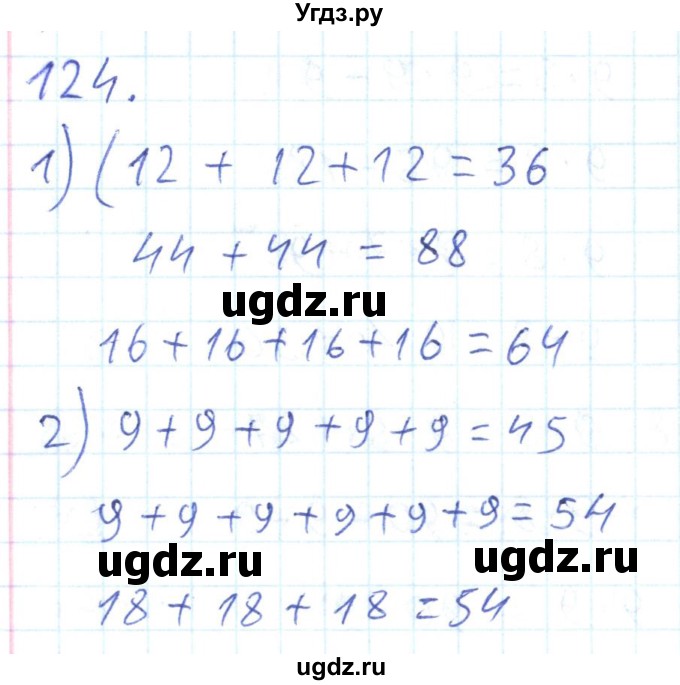 Угдз.ру
124.
1) (12 + 12 + 12 = 36
44 + 44 = 88
ugdz.ru
16 + 16 + 16 + 16 = 64
2) 9 + 9 + 9 + 9 + 9 = 45
9 + 9 + 9 + 9 + 9 + 9 = 54
ugdz.ru ugdz.ru
18 + 18 + 18 = 54
ugdz.ru